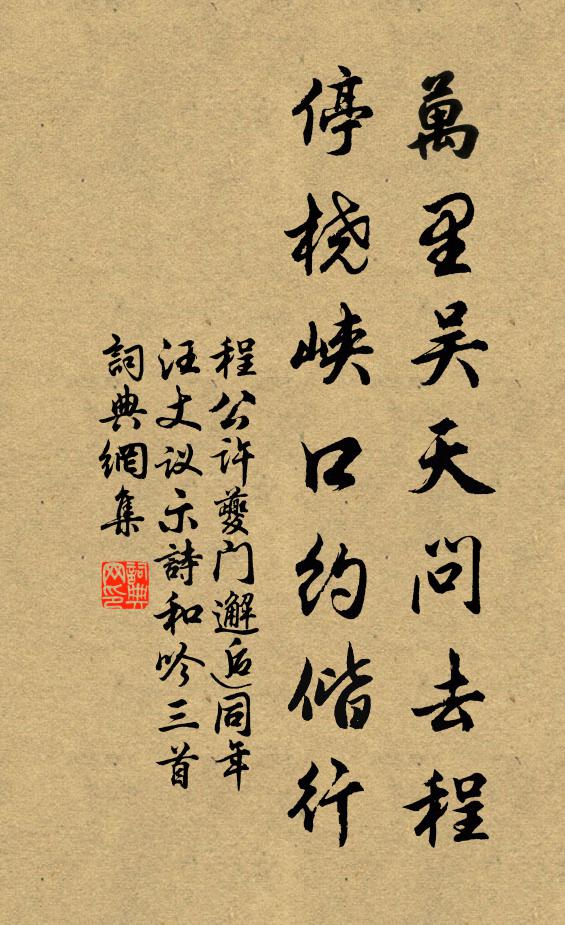 萬里吴天問去程
停桡峡口約偕行
程公许夔门邂逅同年
汪丈议示詩和吟三首
詞典網集
詞典网印